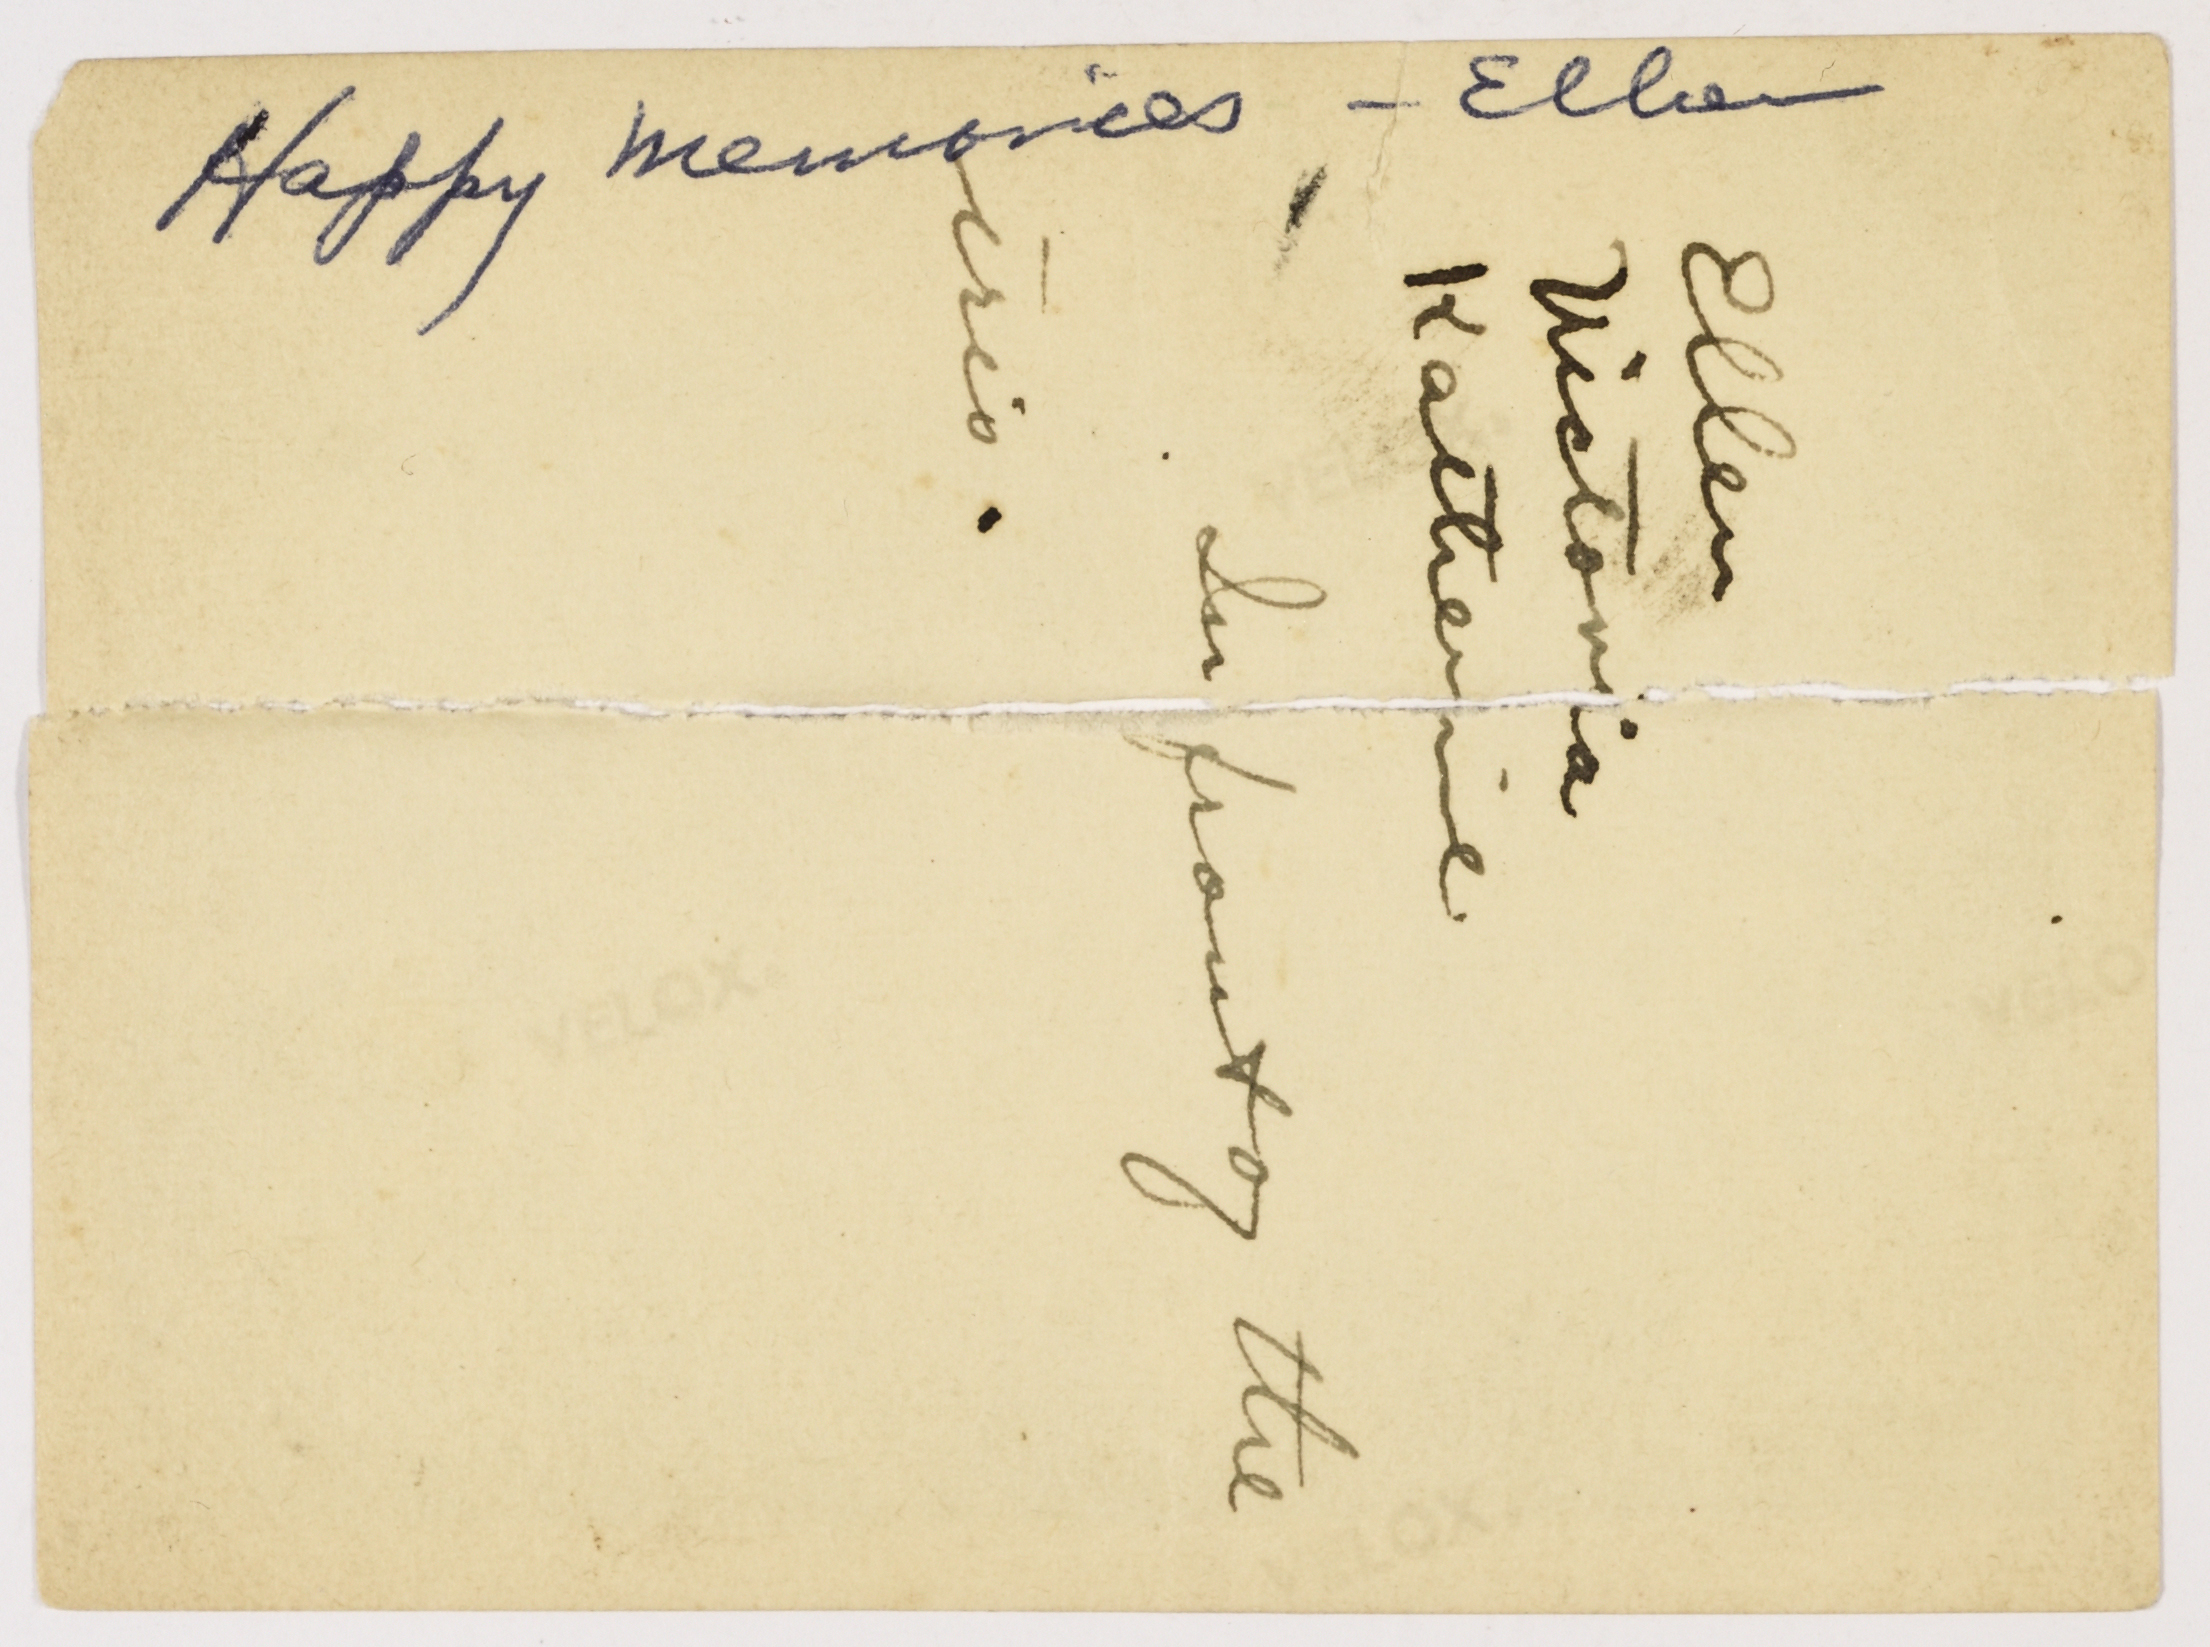 Happy Memories - Ellen
Ellen
Victoria
Katherine
In front of the
trio.
VELOX.
VELOX.
VELO
VELOX.